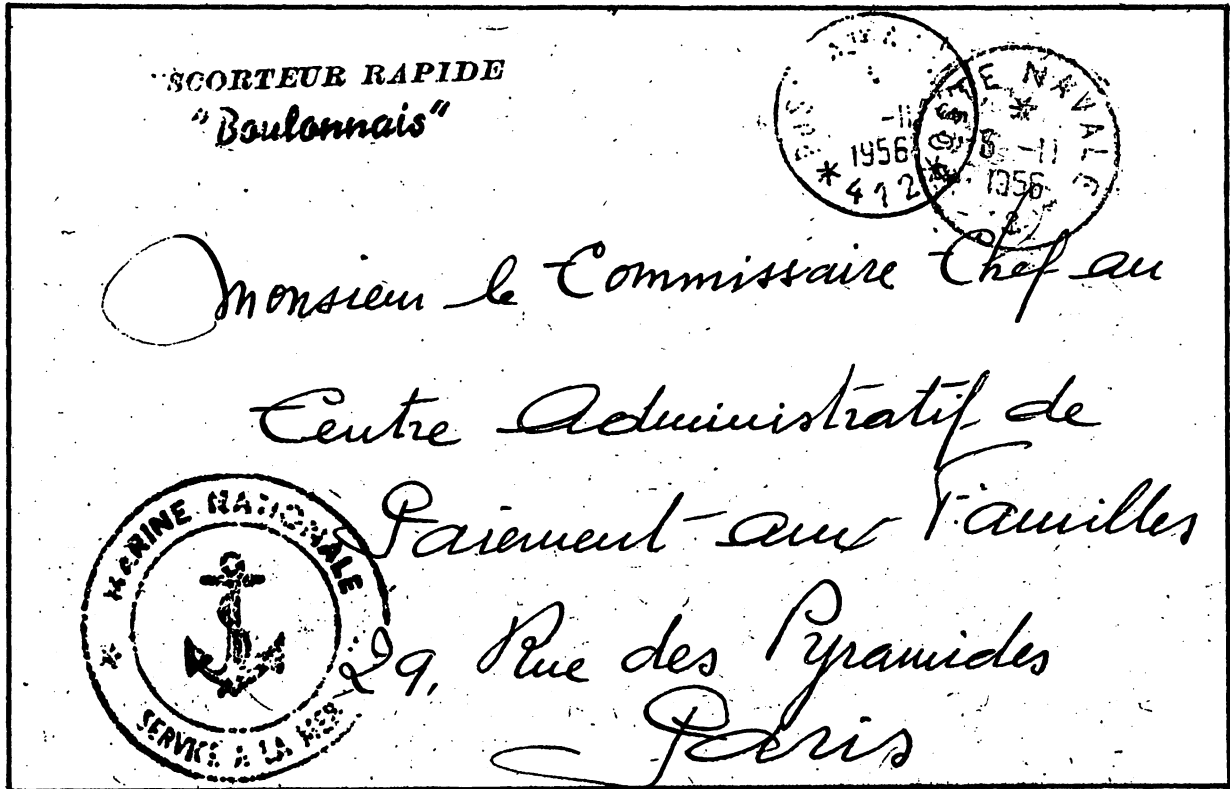 SCORTEUR RAPIDE
"Boulonnais"
-11
1956
* 412 *
NAVALE
*
-11
1956
Monsieur le Commissaire Chef au
Centre Administratif de
Paiement aux Familles
29, Rue des Pyramides
Paris
* MARINE NATIONALE
SERVICE A LA MER